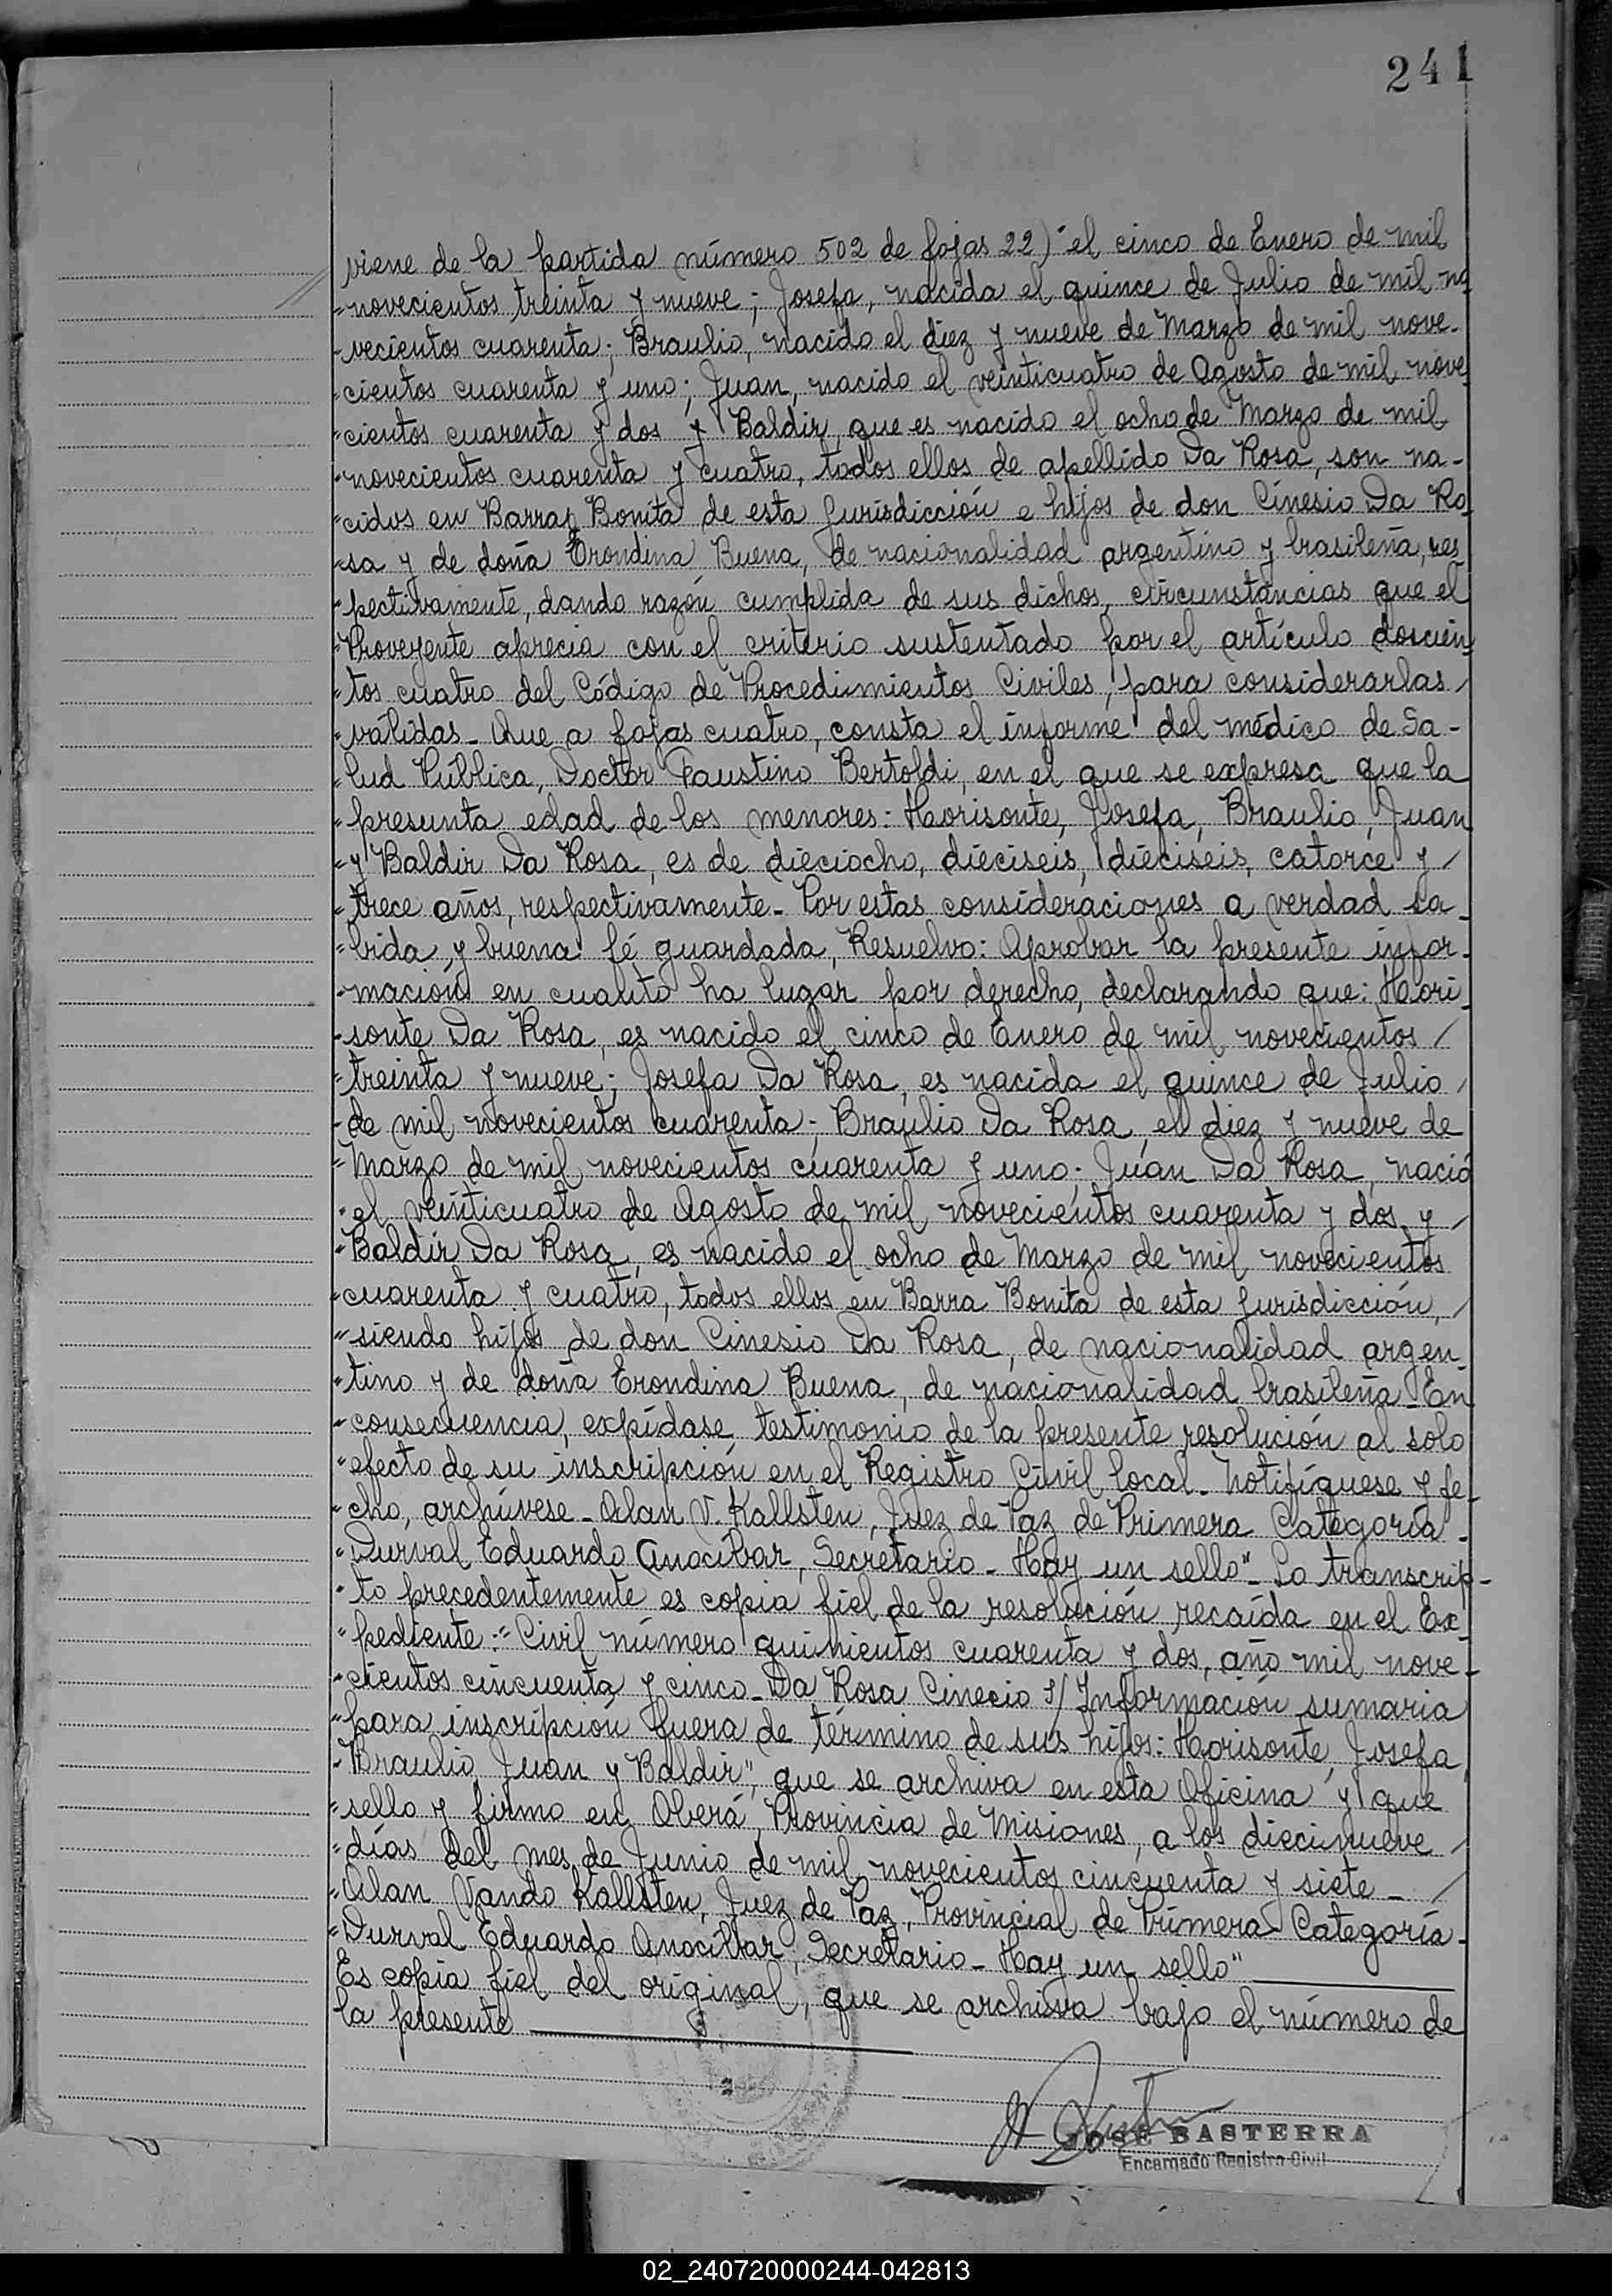 241
viene de la partida número 502 de fojas 22) "el cinco de Enero de mil
"novecientos treinta y nueve; Josefa, nacida el quince de Julio de mil no
"vecientos cuarenta; Braulio, nacido el diez y nueve de Marzo de mil nove-
"cientos cuarenta y uno; Juan, nacido el veinticuatro de Agosto de mil nove
"cientos cuarenta y dos y Baldir, que es nacido el ocho de Marzo de mil
"novecientos cuarenta y cuatro, todos ellos de apellido Da Rosa, son na-
"cidos en Barra Bonita de esta Jurisdicción e hijos de don Cinesio Da Ro
"sa y de doña Erondina Buena, de nacionalidad argentino y brasileña, res
"pectivamente, dando razón cumplida de sus dichos, circunstancias que el
"Proveyente aprecia con el criterio sustentado por el artículo doscien
"tos cuatro del Código de Procedimientos Civiles, para considerarlas /
"válidas_ Que a fojas cuatro, consta el informe del médico de Sa-
"lud Pública, Doctor Faustino Bertoldi, en el que se expresa que la
"presunta edad de los menores: Horisonte, Josefa, Braulio, Juan
"y Baldir Da Rosa, es de dieciocho, dieciseis, dieciseis, catorce y /
"trece años, respectivamente_ Por estas consideraciones a verdad sa_
"bida y buena fé guardada, Resuelvo: Aprobar la presente infor-
"macion en cuanto ha lugar por derecho, declarando que: Hori_
"sonte Da Rosa, es nacido el cinco de Enero de mil novecientos /
"treinta y nueve; Josefa Da Rosa, es nacida el quince de Julio /
"de mil novecientos cuarenta; Braulio Da Rosa, el diez y nueve de
"Marzo de mil novecientos cuarenta y uno; Juan Da Rosa, nació
"el veinticuatro de Agosto de mil novecientos cuarenta y dos y /
"Baldir Da Rosa, es nacido el ocho de Marzo de mil novecientos
"cuarenta y cuatro, todos ellos en Barra Bonita de esta Jurisdicción, /
"siendo hijos de don Cinesio Da Rosa, de nacionalidad argen_
"tino y de doña Erondina Buena, de nacionalidad brasileña_ En
"consecuencia, expídase testimonio de la presente resolución al solo
"efecto de su inscripción en el Registro Civil local_ Notifíquese y fe_
"cho, archívese_ Alan V. Kallsten, Juez de Paz de Primera Categoría_
"Durval Eduardo Anocíbar, Secretario_ Hay un sello"_ Lo transcrip-
"to precedentemente es copia fiel de la resolución recaída en el Ex_
"pediente:"Civil número quinientos cuarenta y dos, año mil nove_
"cientos cincuenta y cinco_ Da Rosa Cinecio s/ Información sumaria
"para inscripción fuera de término de sus hijos: Horisonte, Josefa,
"Braulio, Juan y Baldir", que se archiva en esta Oficina y que
"sello y firmo en Oberá, Provincia de Misiones, a los diecinueve /
"días del mes de Junio de mil novecientos cincuenta y siete_ /
"Alan Vando Kallsten, Juez de Paz, Provincial de Primera Categoría_
"Durval Eduardo Anocíbar, Secretario_ Hay un sello"
Es copia fiel del original, que se archiva bajo el número de
la presente
JOSE BASTERRA
Encargado Registro Civil
02_240720000244-042813